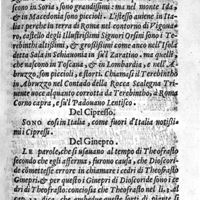 scono in Soria, sono grandissimi: ma nel monte Ida,
& in Macedonia sono piccioli. L'istesso auiene in Ita-
lia: perche in terra di Roma nel contorno di Vigona-
ro, castello degli Illustrissimi Signori Orsini sono i Te-
rebinthi altissimi, & grossissimi come anco nell'Isole
detta Sala in Schiauonia in su'l Zaratino. ma quelli
che nascono in Toscana, & in Lombardia, & nell'A-
bruzzo, son piccioli, & storti. Chiamasi il Terebintho
in Abruzzo nel Contado della Rocca Scalegna Tri-
uento noce corrotta da Terebintho, à Roma
Corno capra, & su'l Padouano Lentisco.
Del Cipresso.
SONO cosi in Italia, come fuori d'Italia notissi-
mi i Cipressi.
Del Ginepro.
LE parole, che si usauano al tempo di Theofrasto
secondo che egli afferma, furono causa, che Dioscori-
de cōmettesse errore in chiamare i cedri di Theofrasto
Ginepri. & per questo i Ginepri di Dioscoride sono i ce-
dri di Theofrasto: conciosia che Theofrasto nel li.